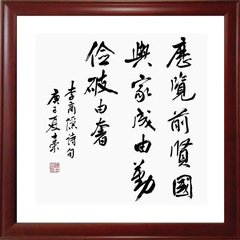 歷覽前賢國
與家成由勤
儉破由奢
李商隱詩句
庚子夏